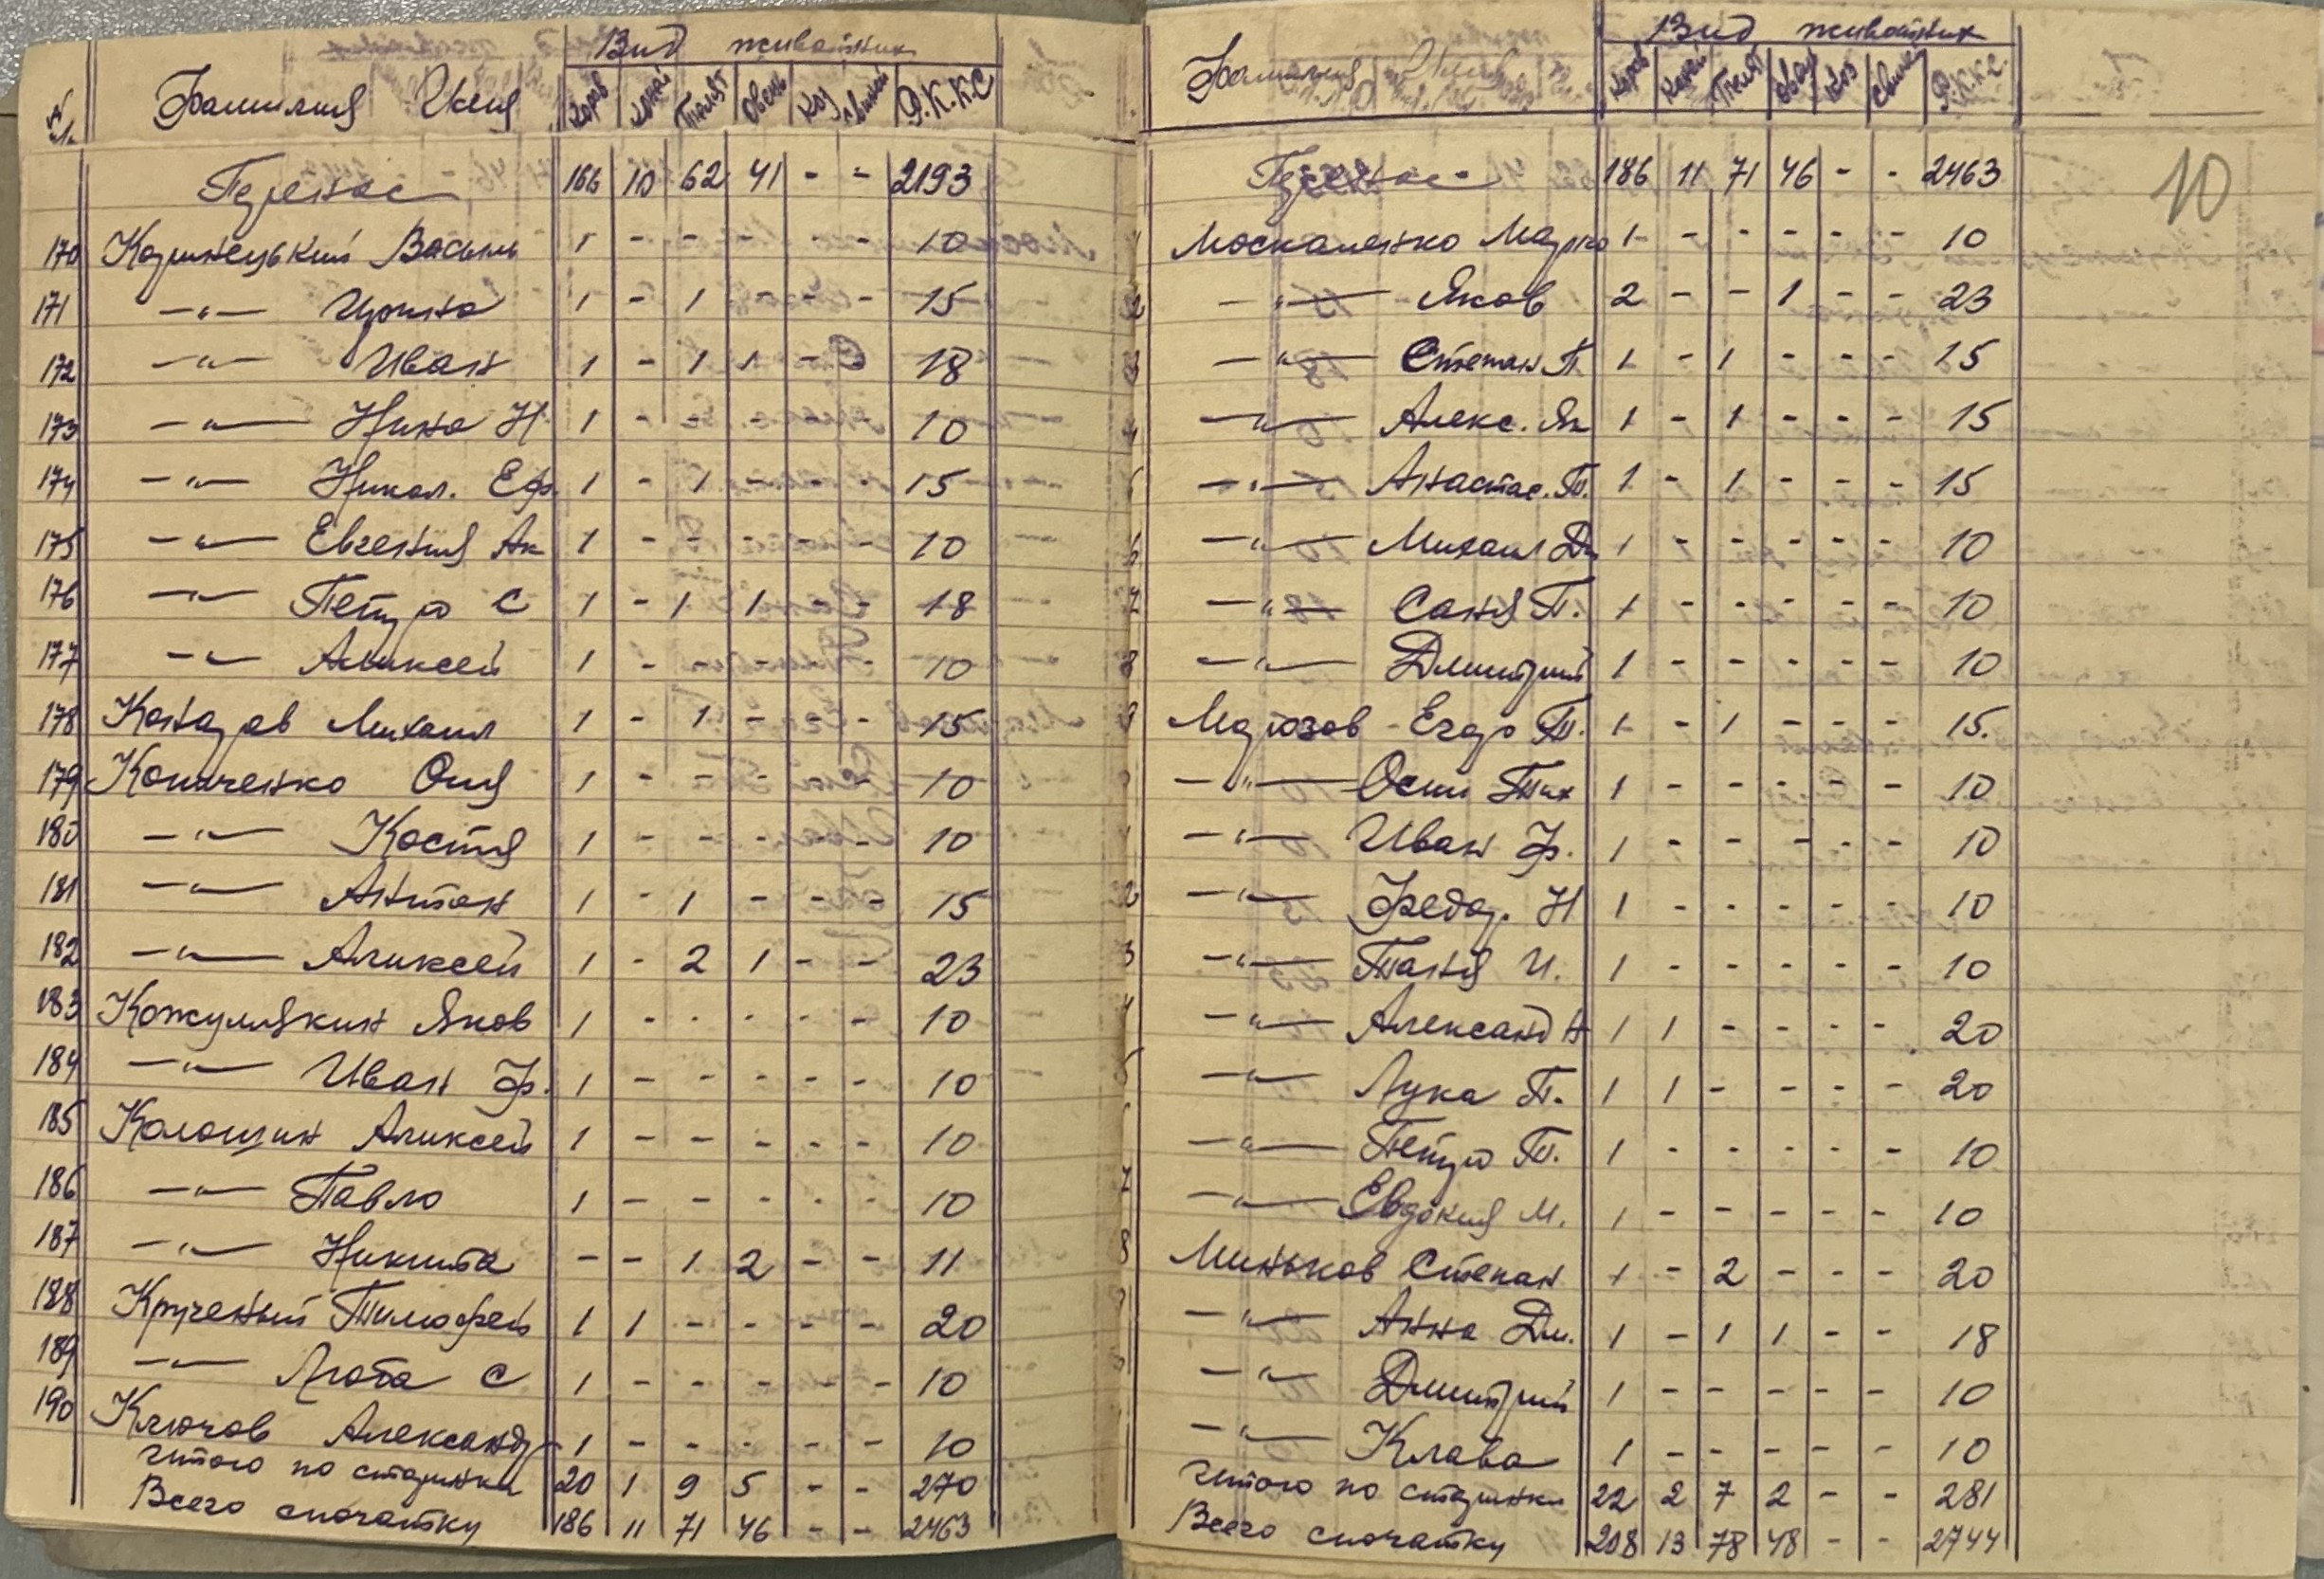 Вид животних
№ п/п Фамилия Имя Коров Коней Телят Овець Коз Свиней Р.К.К.С
Перенос 166 10 62 41 - - 2193
170 Коринецький Василь 1 - - - - - 10
171 -"- Ирина 1 - 1 - - - 15
172 -"- Иван 1 - 1 1 - - 18
173 -"- Нина Н 1 - - - - - 10
174 -"- Никол. Еф. 1 - 1 - - - 15
175 -"- Евгения Ак 1 - - - - - 10
176 -"- Петро С 1 - 1 1 - - 18
177 -"- Аликсей 1 - - - - - 10
178 Михаил 1 - 1 - - - 15
179 Оля 1 - - - - - 10
180 -"- Костя 1 - - - - - 10
181 -"- Антон 1 - 1 - - - 15
182 -"- Аликсей 1 - 2 1 - - 23
183 Кожулякин Яков 1 - - - - - 10
184 -"- Иван Ф. 1 - - - - - 10
185 Аликсей 1 - - - - - 10
186 -"- Павло 1 - - - - - 10
187 -"- Никита - - 1 2 - - 11
188 Крученый Тимофей 1 1 - - - - 20
189 -"- Люба С 1 - - - - - 10
190 Ключов Александр 1 - - - - - 10
Итого по старинки 20 1 9 5 - - 270
Всего спочатку 186 11 71 46 - - 2463
Вид животних
Фамилия Имя Коров Коней Телят Овец Коз Свиней Р.К.К.С.
Перенос 186 11 71 46 - - 2463
10
1 Москаленко Марко 1 - - - - - 10
2 -"- Яков 2 - - 1 - - 23
3 -"- Степан П. 1 - 1 - - - 15
4 -"- Алекс. Як 1 - 1 - - - 15
5 -"- Анастас. Т. 1 - 1 - - - 15
6 -"- Михаил Дм 1 - - - - - 10
7 -"- Саня П. 1 - - - - - 10
8 -"- Дмитрий 1 - - - - - 10
9 Морозов Егор Т. 1 - 1 - - - 15.
0 -"- Осип Тих 1 - - - - - 10
1 -"- Иван Ф. 1 - - - - - 10
2 -"- Федор. Н 1 - - - - - 10
3 -"- Таня И. 1 - - - - - 10
4 -"- Александ Н 1 1 - - - - 20
5 -"- Лука Т. 1 1 - - - - 20
-"- Петро Т. 1 - - - - - 10
7 -"- Евдокия М. 1 - - - - - 10
8 Миньков Степан 1 - 2 - - - 20
9 -"- Анна Дм. 1 - 1 1 - - 18
-"- Дмитрий 1 - - - - - 10
-"- Клава 1 - - - - - 10
Итого по старинки 22 2 7 2 - - 281
Всего спочатку 208 13 78 48 - - 2744